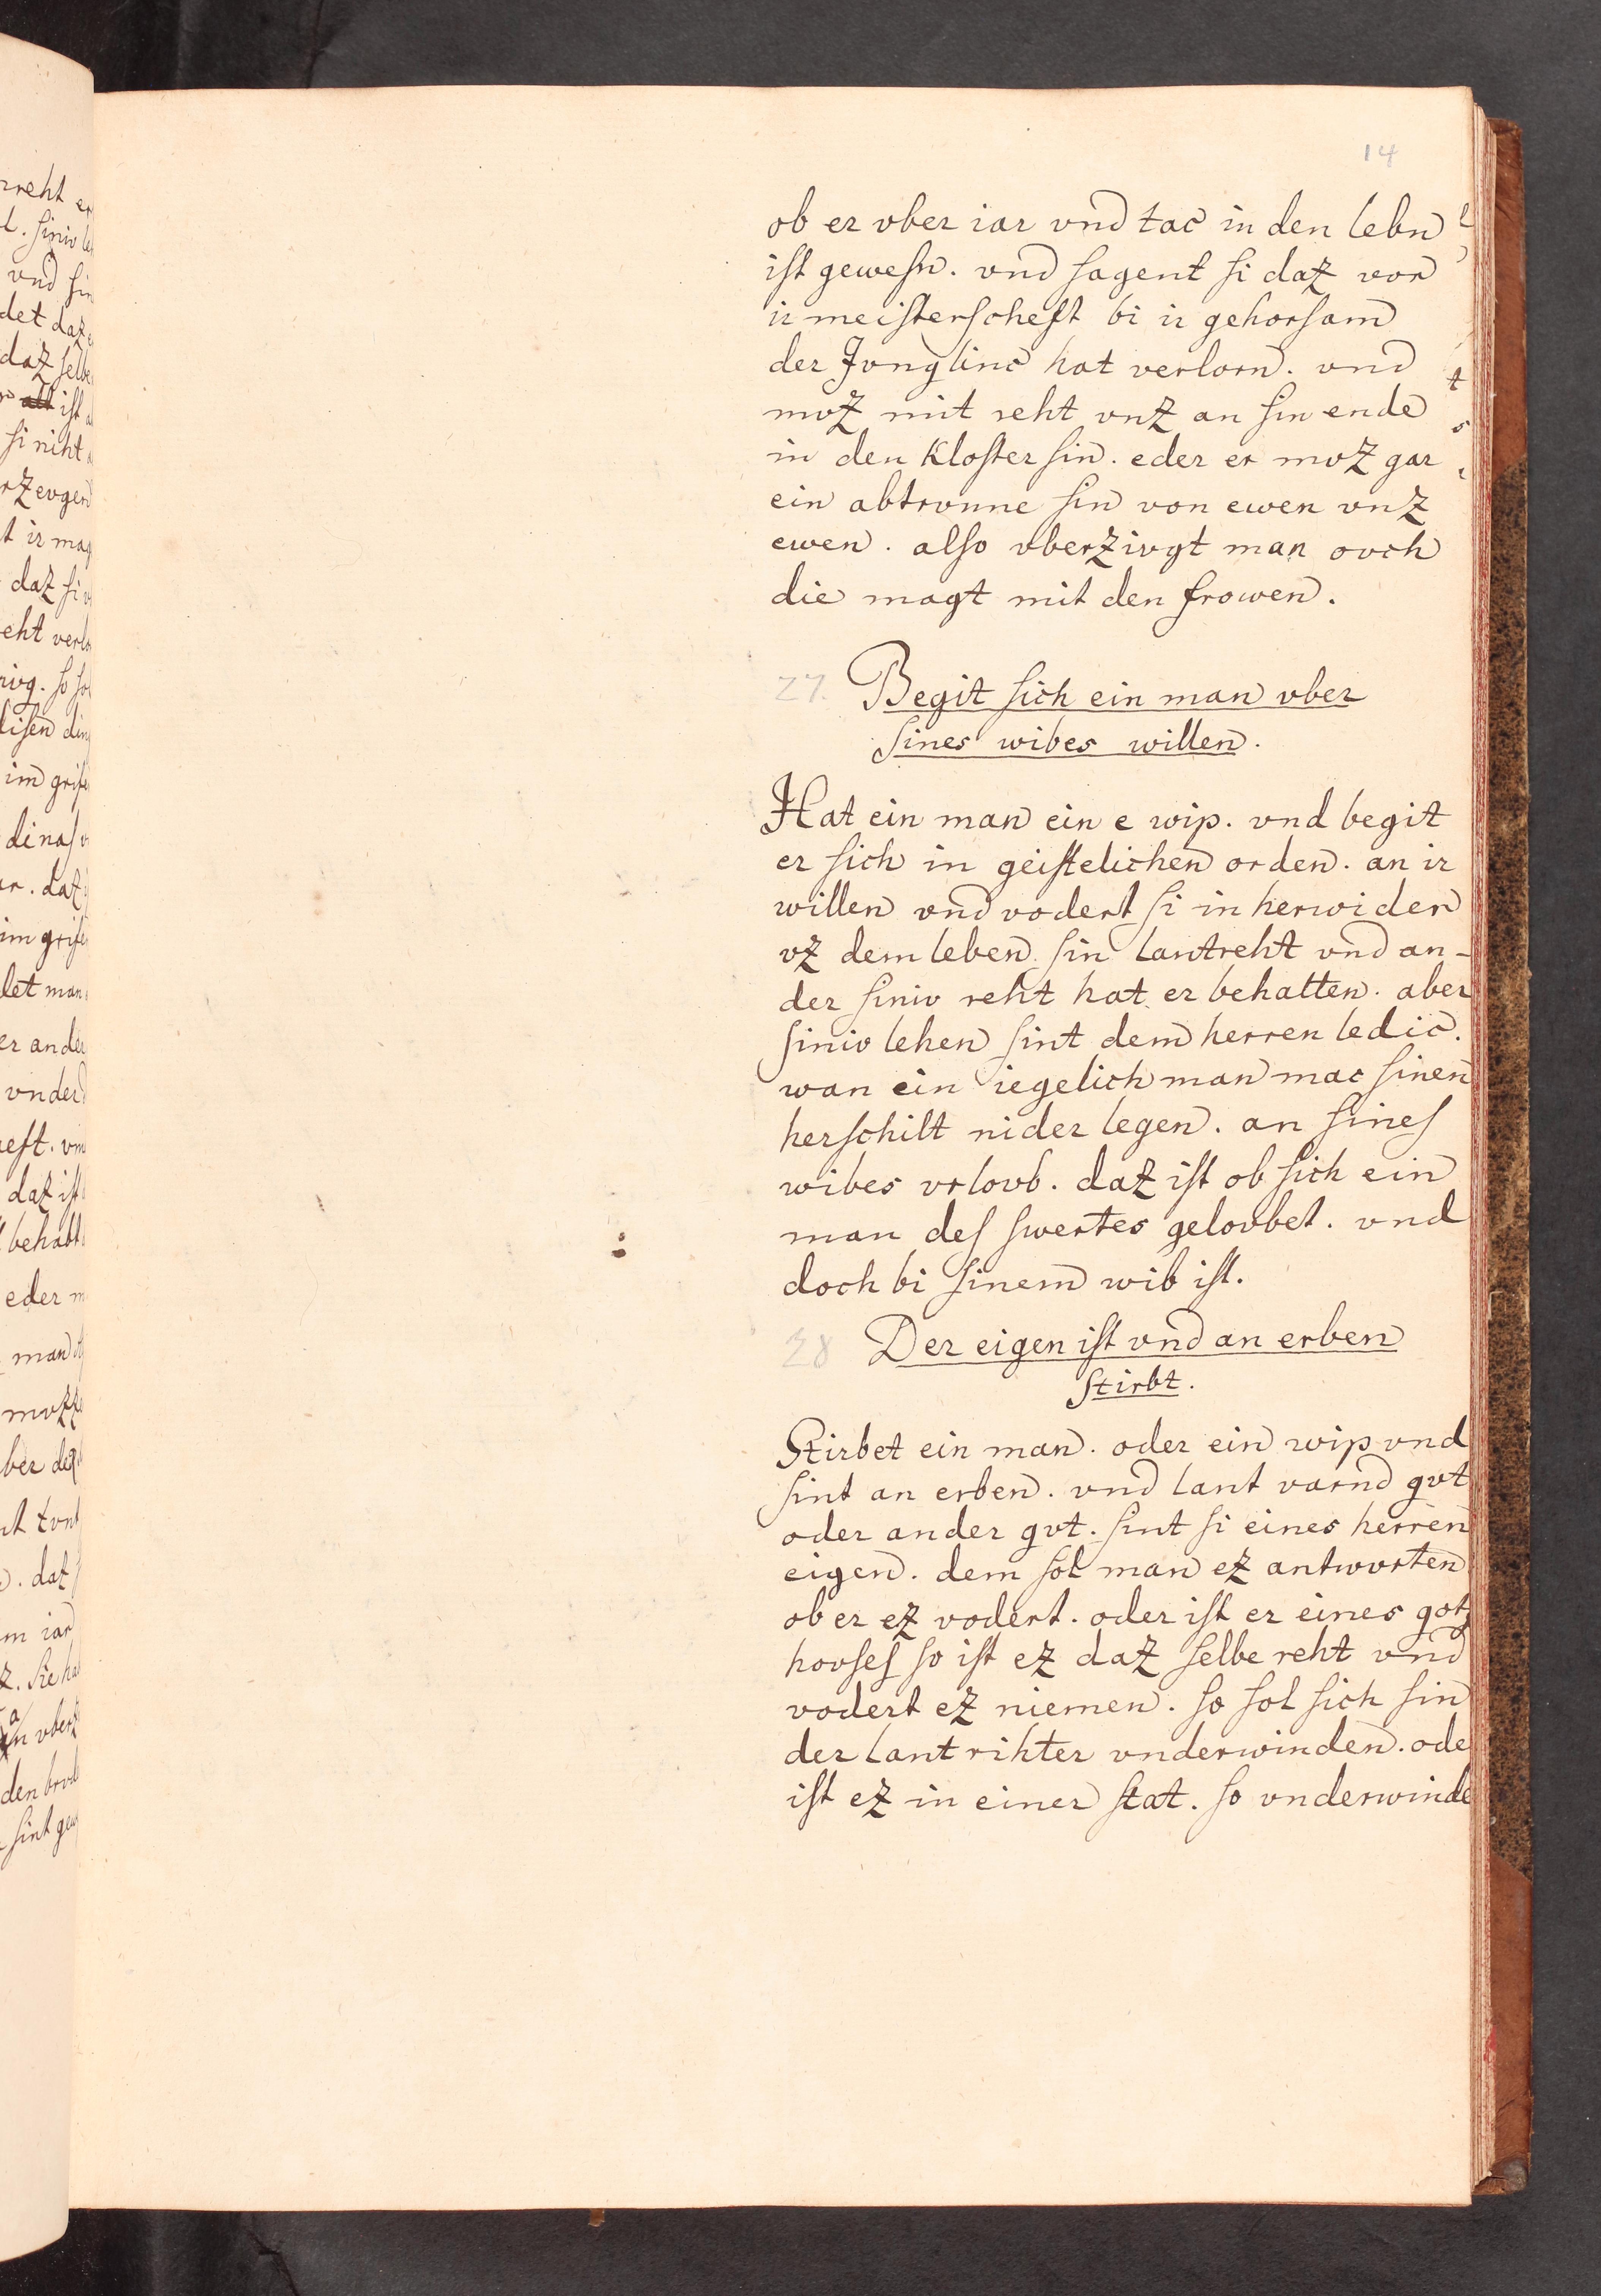 14
ob er vber iar vnd tac in den lebn
ist gewesn. vnd sagent si daz vor
ir meisterscheft bi ir gehorsam
der Jvnglinc hat verlorn. vnd
mvz mit reht vnz an sin ende
in den kloster sin. eder er mvz gar
ein abtrvnne sin von ewen vnz
ewen. also vberzivgt man ovch
die magt mit den frowen.
27. Begit sich ein man vber
sines wibes willen.
Hat ein man ein e wip. vnd begit
er sich in geistelichen orden. an ir
willen vnd vodert si in herwider
vz dem leben. sin lantreht vnd an-
der siniv reht hat er behalten. aber
siniv lehen sint dem herren ledic.
wan ein iegelich man mac sinen
herschilt nider legen. an sines
wibes vrlovb. daz ist ob sich ein
man des swertes gelovbet. vnd
doch bi sinem wib ist.
28 Der eigen ist vnd an erben
stirbt.
Stirbet ein man. oder ein wip vnd
sint an erben. vnd lant varnd gvt
oder ander gvt. sint si eines herren
eigen. dem sol man ez antwvrten
ob er ez vodert. oder ist er eines gotz
hovses so ist ez daz selbe reht vnd
vodert ez niemen. so sol sich sin
der lantrihter vnderwinden. ode
ist ez in einer stat. so vnderwinde